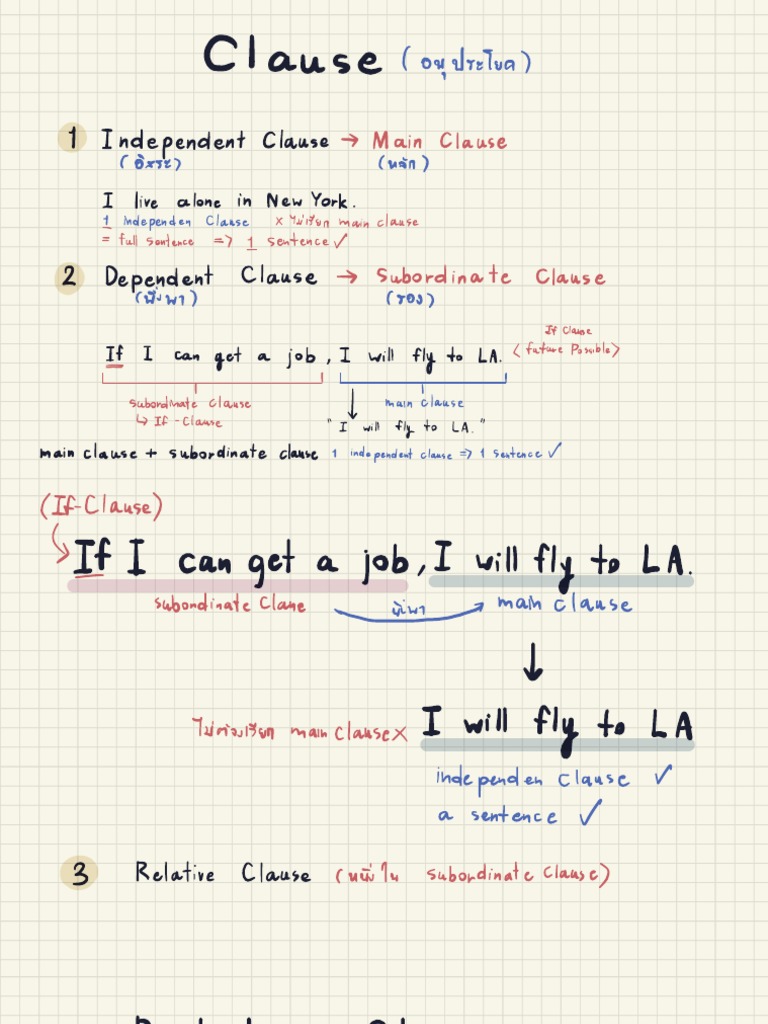 Clause (อนุประโยค)
1 Independent Clause → Main Clause
(อิสระ) (หลัก)
I live alone in New York.
1 Independen Clause × ไม่เรียก main clause
= full sentence => 1 sentence ✓
2 Dependent Clause → Subordinate Clause
(พึ่งพา) (รอง)
If Clause
If I can get a job, I will fly to LA. < future Possible>
subordinate clause main clause
↳ If-Clause "I will fly to LA."
main clause + subordinate clause 1 independent clause => 1 sentence ✓
(If-Clause)
If I can get a job, I will fly to LA.
subordinate Clause พึ่งพา main clause
↓
ไม่ต้องเรียก main clause × I will fly to LA
independen clause ✓
a sentence ✓
3 Relative Clause (หนึ่งใน subordinate clause)